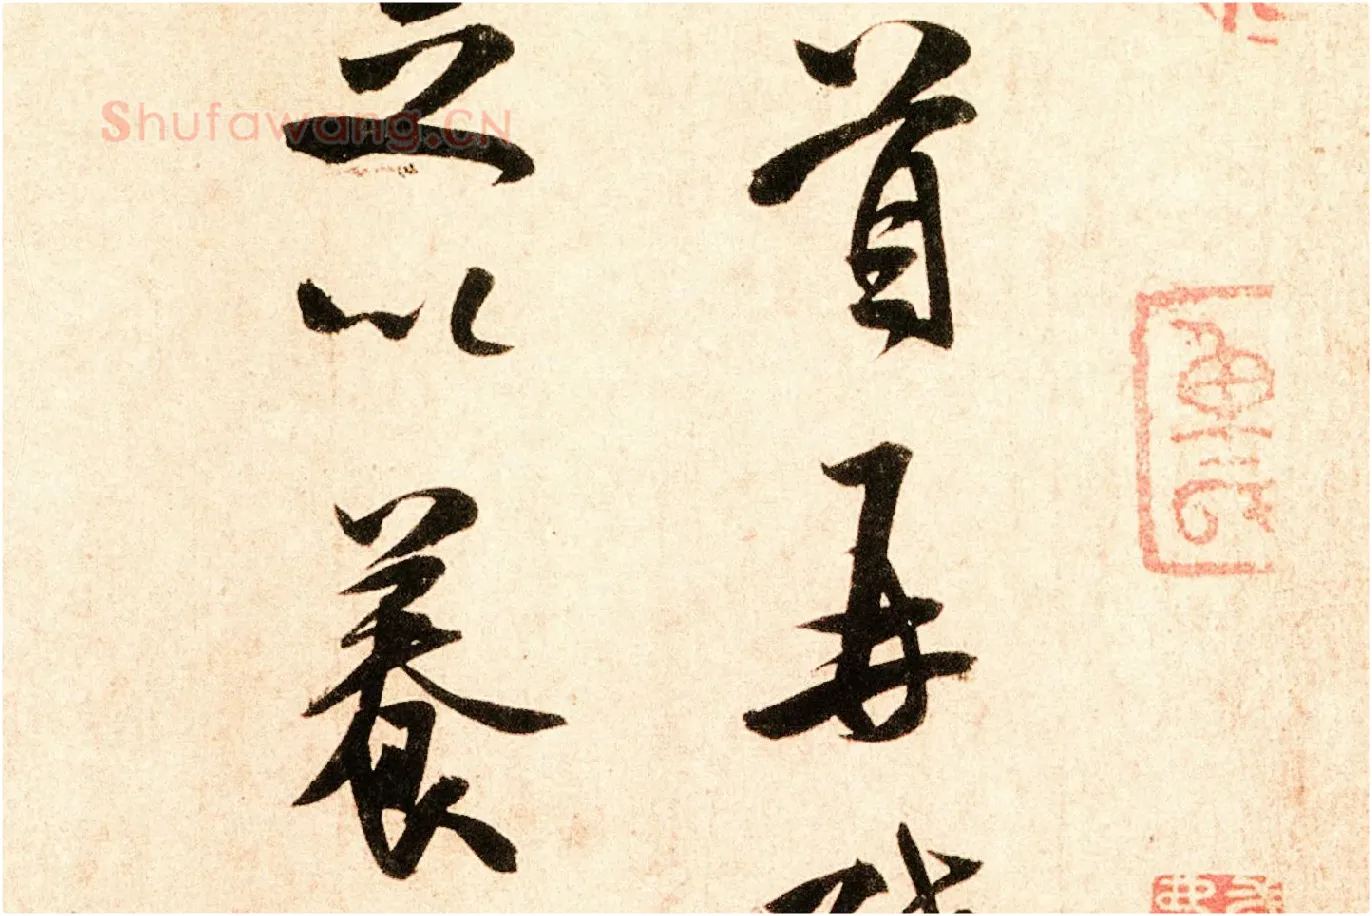 首再
立以養
Shufawang.CN